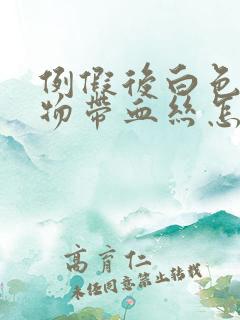 例假後白色
物帶血絲怎
高育仁
未任同意禁止转载